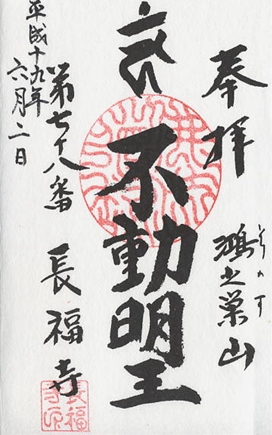 奉拝
鴻之巣山
こうのす
不動明王
第七十八番
長福寺
平成十九年
六月二日